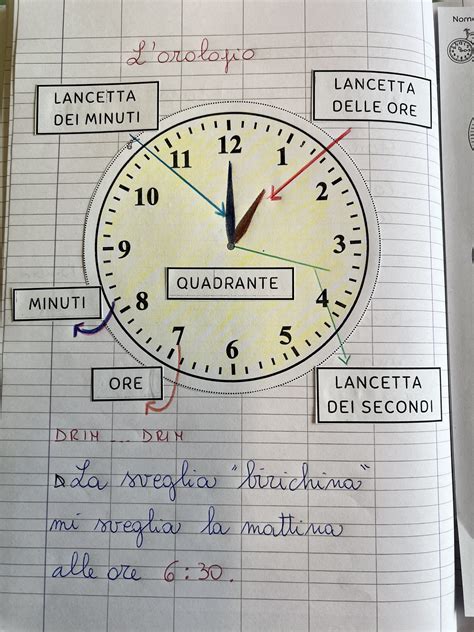 Nome
L'orologio
LANCETTA
DEI MINUTI
LANCETTA
DELLE ORE
12
1
2
3
4
5
6
7
8
9
10
11
QUADRANTE
MINUTI
ORE
LANCETTA
DEI SECONDI
DRIM ... DRIM
La sveglia "birichina"
mi sveglia la mattina
alle ore 6:30.